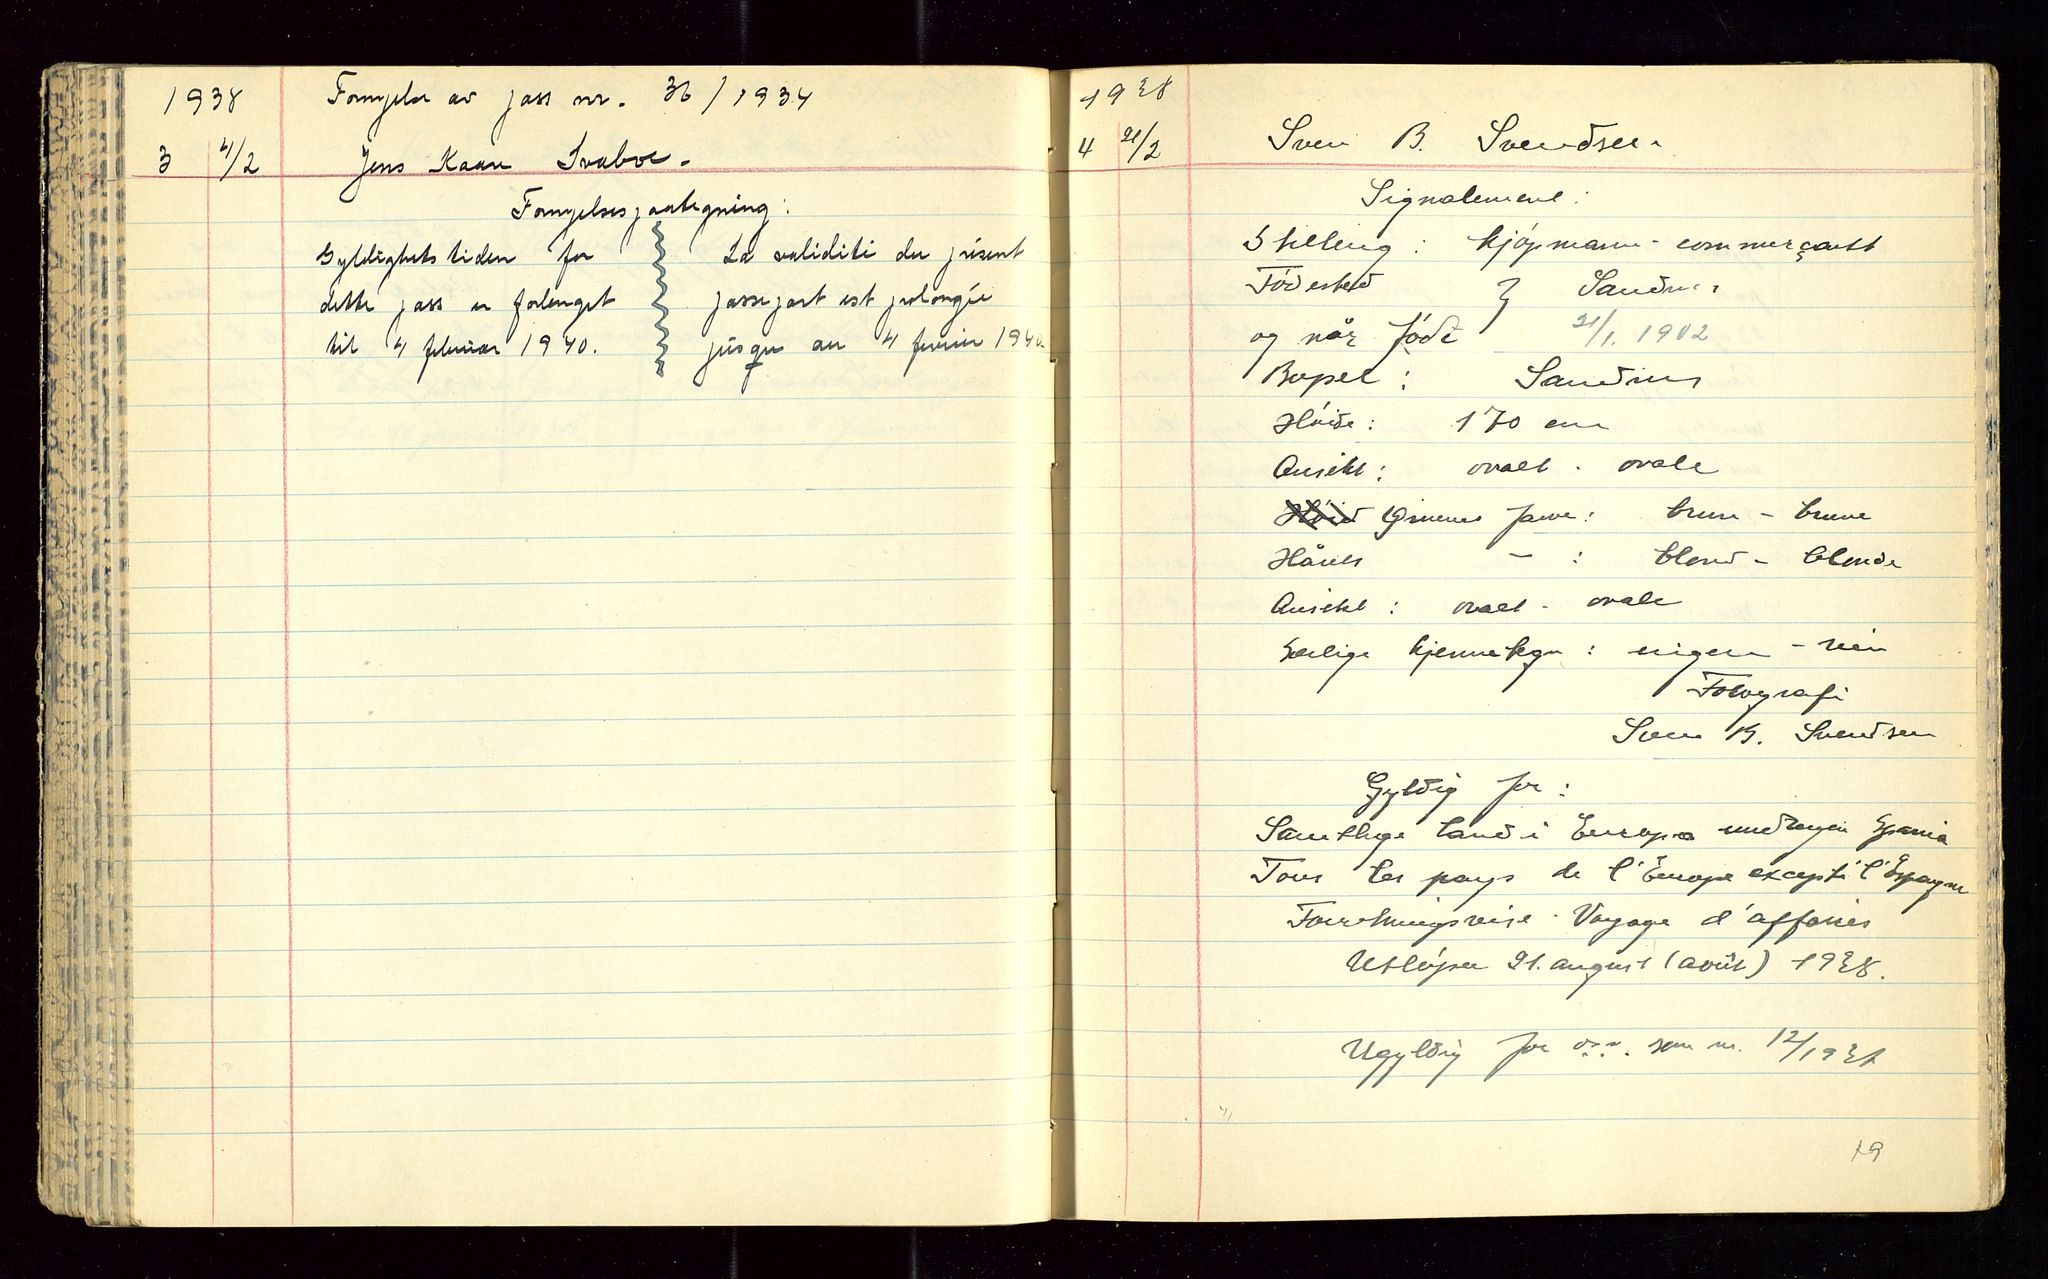 1938 Fornyelse av pass nr. 36/1934
3 4/2 Jens Kaare Svaboe.
Fornyelsespaategning:
Gyldighetstiden for
dette pass er forlenget
til 4 februar 1940.
La validité du présent
passeport est prolongée
jusque au 4 février 1940.
1938
4 21/2 Sven B. Svendsen
Signalement:
Stilling: kjøpmann - commerçant
Fødested } Sandnes
og når født 21/1. 1902
Bopel: Sandnes
Høide: 170 cm
Ansikt: ovalt - ovale
Høid Øinenes farve: brun - brune
Hårets - : blond - blonde
Ansikt: ovalt - ovale
Særlige kjennetegn: ingen - rien
Fotografi
Sven B. Svendsen
Gyldig for:
Samtlige land i Europa undtagen Spania
Tous les pays de l'Europe excepté l'Espagne
Forretningsreise - Voyage d'affaires
Utløper 21. august (août) 1938.
Ugyldig for som nr. 12/19
19